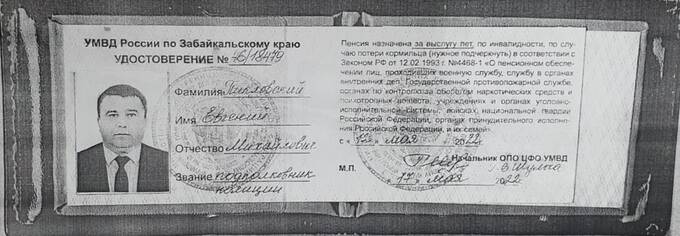 УМВД России по Забайкальскому краю
УДОСТОВЕРЕНИЕ № 76/18479
Фамилия
Имя Евгений
Отчество Михайлович
Звание подполковник
полиции
Пенсия назначена за выслугу лет, по инвалидности, по слу-
чаю потери кормильца (нужное подчеркнуть) в соответствии с
Законом РФ от 12.02.1993 г. №4468-1 «О пенсионном обеспе-
чении лиц, проходивших военную службу, службу в органах
внутренних дел, Государственной противопожарной службе,
органах по контролю за оборотом наркотических средств и
психотропных веществ, учреждениях и органах уголовно-
исполнительной системы, войсках национальной гвардии
Российской Федерации, органах принудительного исполне-
ния Российской Федерации, и их семей».
с « 12 » мая 2022
Начальник ОПО ЦФО УМВД
М.П.
« 17 » мая 2022